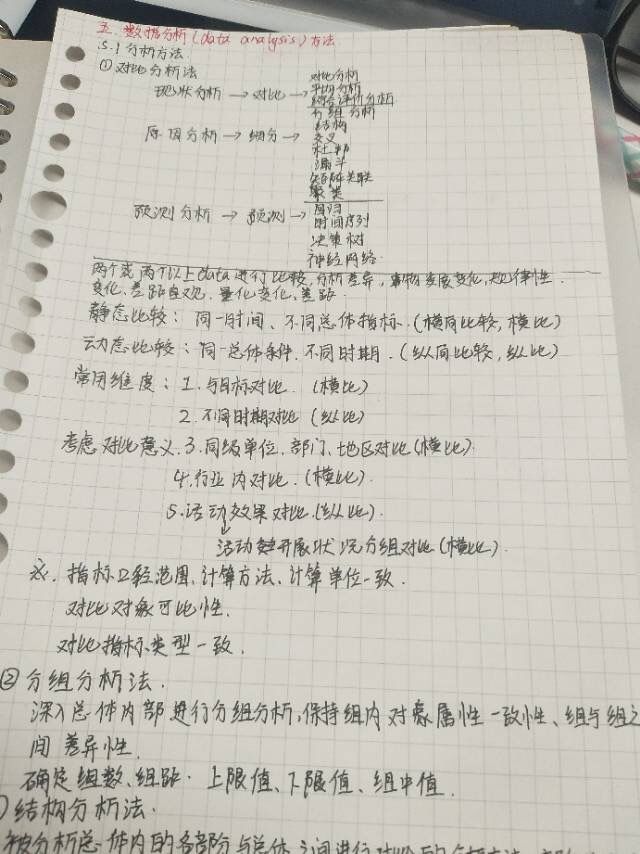 五. 数据分析(data analysis)方法.
5.1 分析方法
① 对比分析法
现状分析 → 对比 → 对比分析
平均分析
综合评价分析
原因分析 → 细分 → 分组分析
结构
交叉
杜邦
漏斗
矩阵关联
聚类
预测分析 → 预测 → 回归
时间序列
决策树
神经网络
两个或两个以上data进行比较,分析差异,事物发展变化,规律性.
变化、差距直观、量化变化、差距.
静态比较:同一时间、不同总体指标.(横向比较,横比)
动态比较:同一总体条件.不同时期.(纵向比较,纵比)
常用维度:1.与目标对比 (横比)
2.不同时期对比 (纵比)
考虑对比意义.3.同级单位、部门、地区对比(横比)
4.行业内对比.(横比)
5.活动效果对比.(纵比).
活动开展状况分组对比(横比).
※. 指标口径范围、计算方法、计算单位一致.
对比对象可比性.
对比指标类型一致.
② 分组分析法.
深入总体内部进行分组分析,保持组内对象属性一致性、组与组之
间差异性.
确定组数、组距.上限值、下限值、组中值.
结构分析法.
被分析总体内的各部分与总体之间进行对比的分析方法